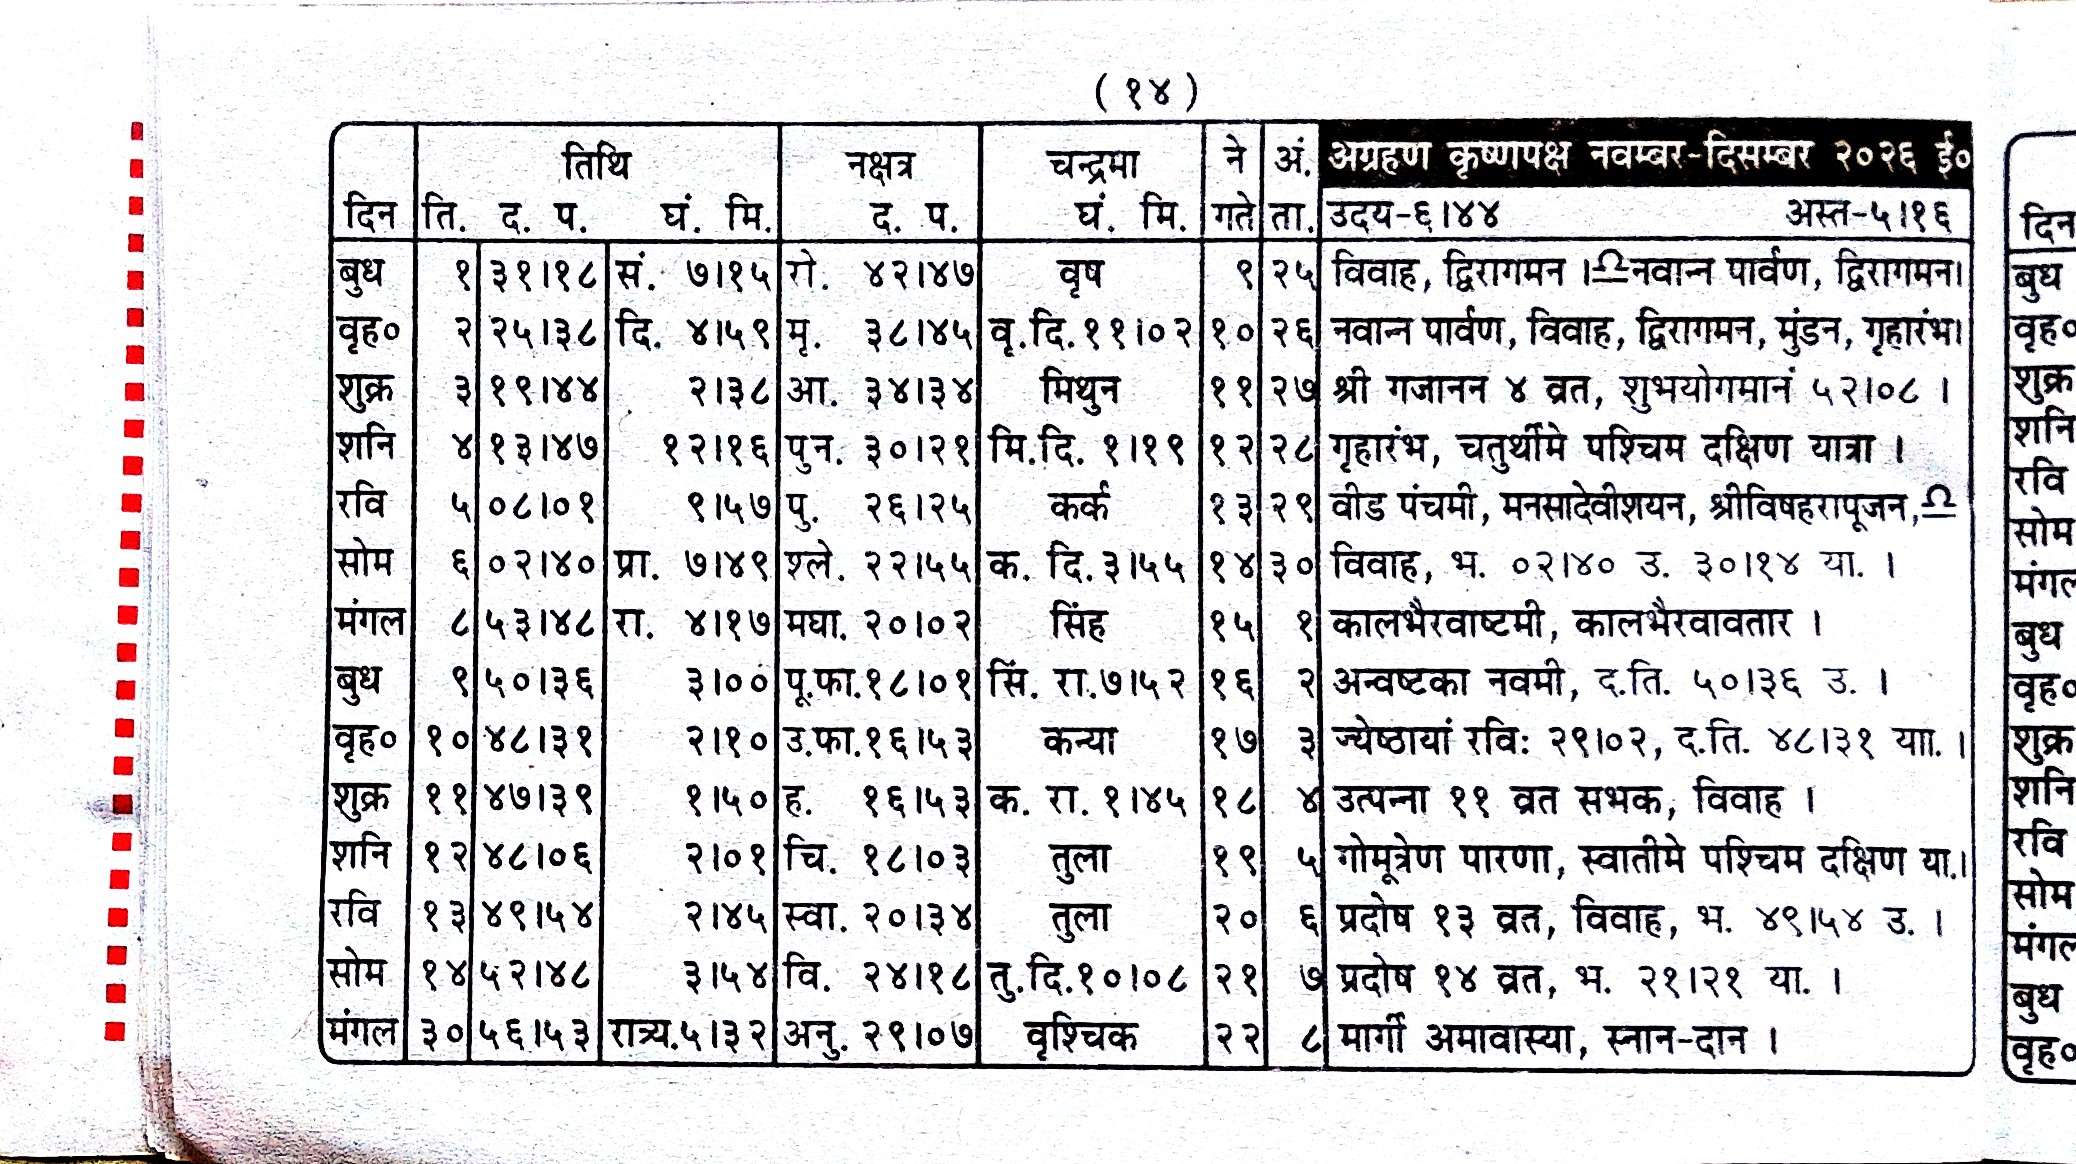 ( १४ )
तिथि नक्षत्र चन्द्रमा ने अं. अग्रहण कृष्णपक्ष नवम्बर-दिसम्बर २०२६ ई०
दिन ति. द. प. घं. मि. द. प. घं. मि. गते ता. उदय-६।४४ अस्त-५।१६
बुध १ ३१।१८ सं. ७।१५ रो. ४२।४७ वृष ९ २५ विवाह, द्विरागमन ।♎नवान्न पार्वण, द्विरागमन।
वृह० २ २५।३८ दि. ४।५९ मृ. ३८।४५ वृ.दि.११।०२ १० २६ नवान्न पार्वण, विवाह, द्विरागमन, मुंडन, गृहारंभ।
शुक्र ३ १९।४४ २।३८ आ. ३४।३४ मिथुन ११ २७ श्री गजानन ४ व्रत, शुभयोगमानं ५२।०८ ।
शनि ४ १३।४७ १२।१६ पुन. ३०।२१ मि.दि. १।१९ १२ २८ गृहारंभ, चतुर्थीमे पश्चिम दक्षिण यात्रा ।
रवि ५ ०८।०१ ९।५७ पु. २६।२५ कर्क १३ २९ वीड पंचमी, मनसादेवीशयन, श्रीविषहरापूजन,♎
सोम ६ ०२।४० प्रा. ७।४९ श्ले. २२।५५ क. दि.३।५५ १४ ३० विवाह, भ. ०२।४० उ. ३०।१४ या. ।
मंगल ८ ५३।४८ रा. ४।१७ मघा. २०।०२ सिंह १५ १ कालभैरवाष्टमी, कालभैरवावतार ।
बुध ९ ५०।३६ ३।०० पू.फा.१८।०१ सिं. रा.७।५२ १६ २ अन्वष्टका नवमी, द.ति. ५०।३६ उ. ।
वृह० १० ४८।३१ २।१० उ.फा.१६।५३ कन्या १७ ३ ज्येष्ठायां रविः २९।०२, द.ति. ४८।३१ याा. ।
शुक्र ११ ४७।३९ १।५० ह. १६।५३ क. रा. १।४५ १८ ४ उत्पन्ना ११ व्रत सभक, विवाह ।
शनि १२ ४८।०६ २।०१ चि. १८।०३ तुला १९ ५ गोमूत्रेण पारणा, स्वातीमे पश्चिम दक्षिण या.।
रवि १३ ४९।५४ २।४५ स्वा. २०।३४ तुला २० ६ प्रदोष १३ व्रत, विवाह, भ. ४९।५४ उ. ।
सोम १४ ५२।४८ ३।५४ वि. २४।१८ तु.दि.१०।०८ २१ ७ प्रदोष १४ व्रत, भ. २१।२१ या. ।
मंगल ३० ५६।५३ रात्र्य.५।३२ अनु. २९।०७ वृश्चिक २२ ८ मार्गी अमावास्या, स्नान-दान ।
दिन
बुध
वृह०
शुक्र
शनि
रवि
सोम
मंगल
बुध
वृह०
शुक्र
शनि
रवि
सोम
मंगल
बुध
वृह०